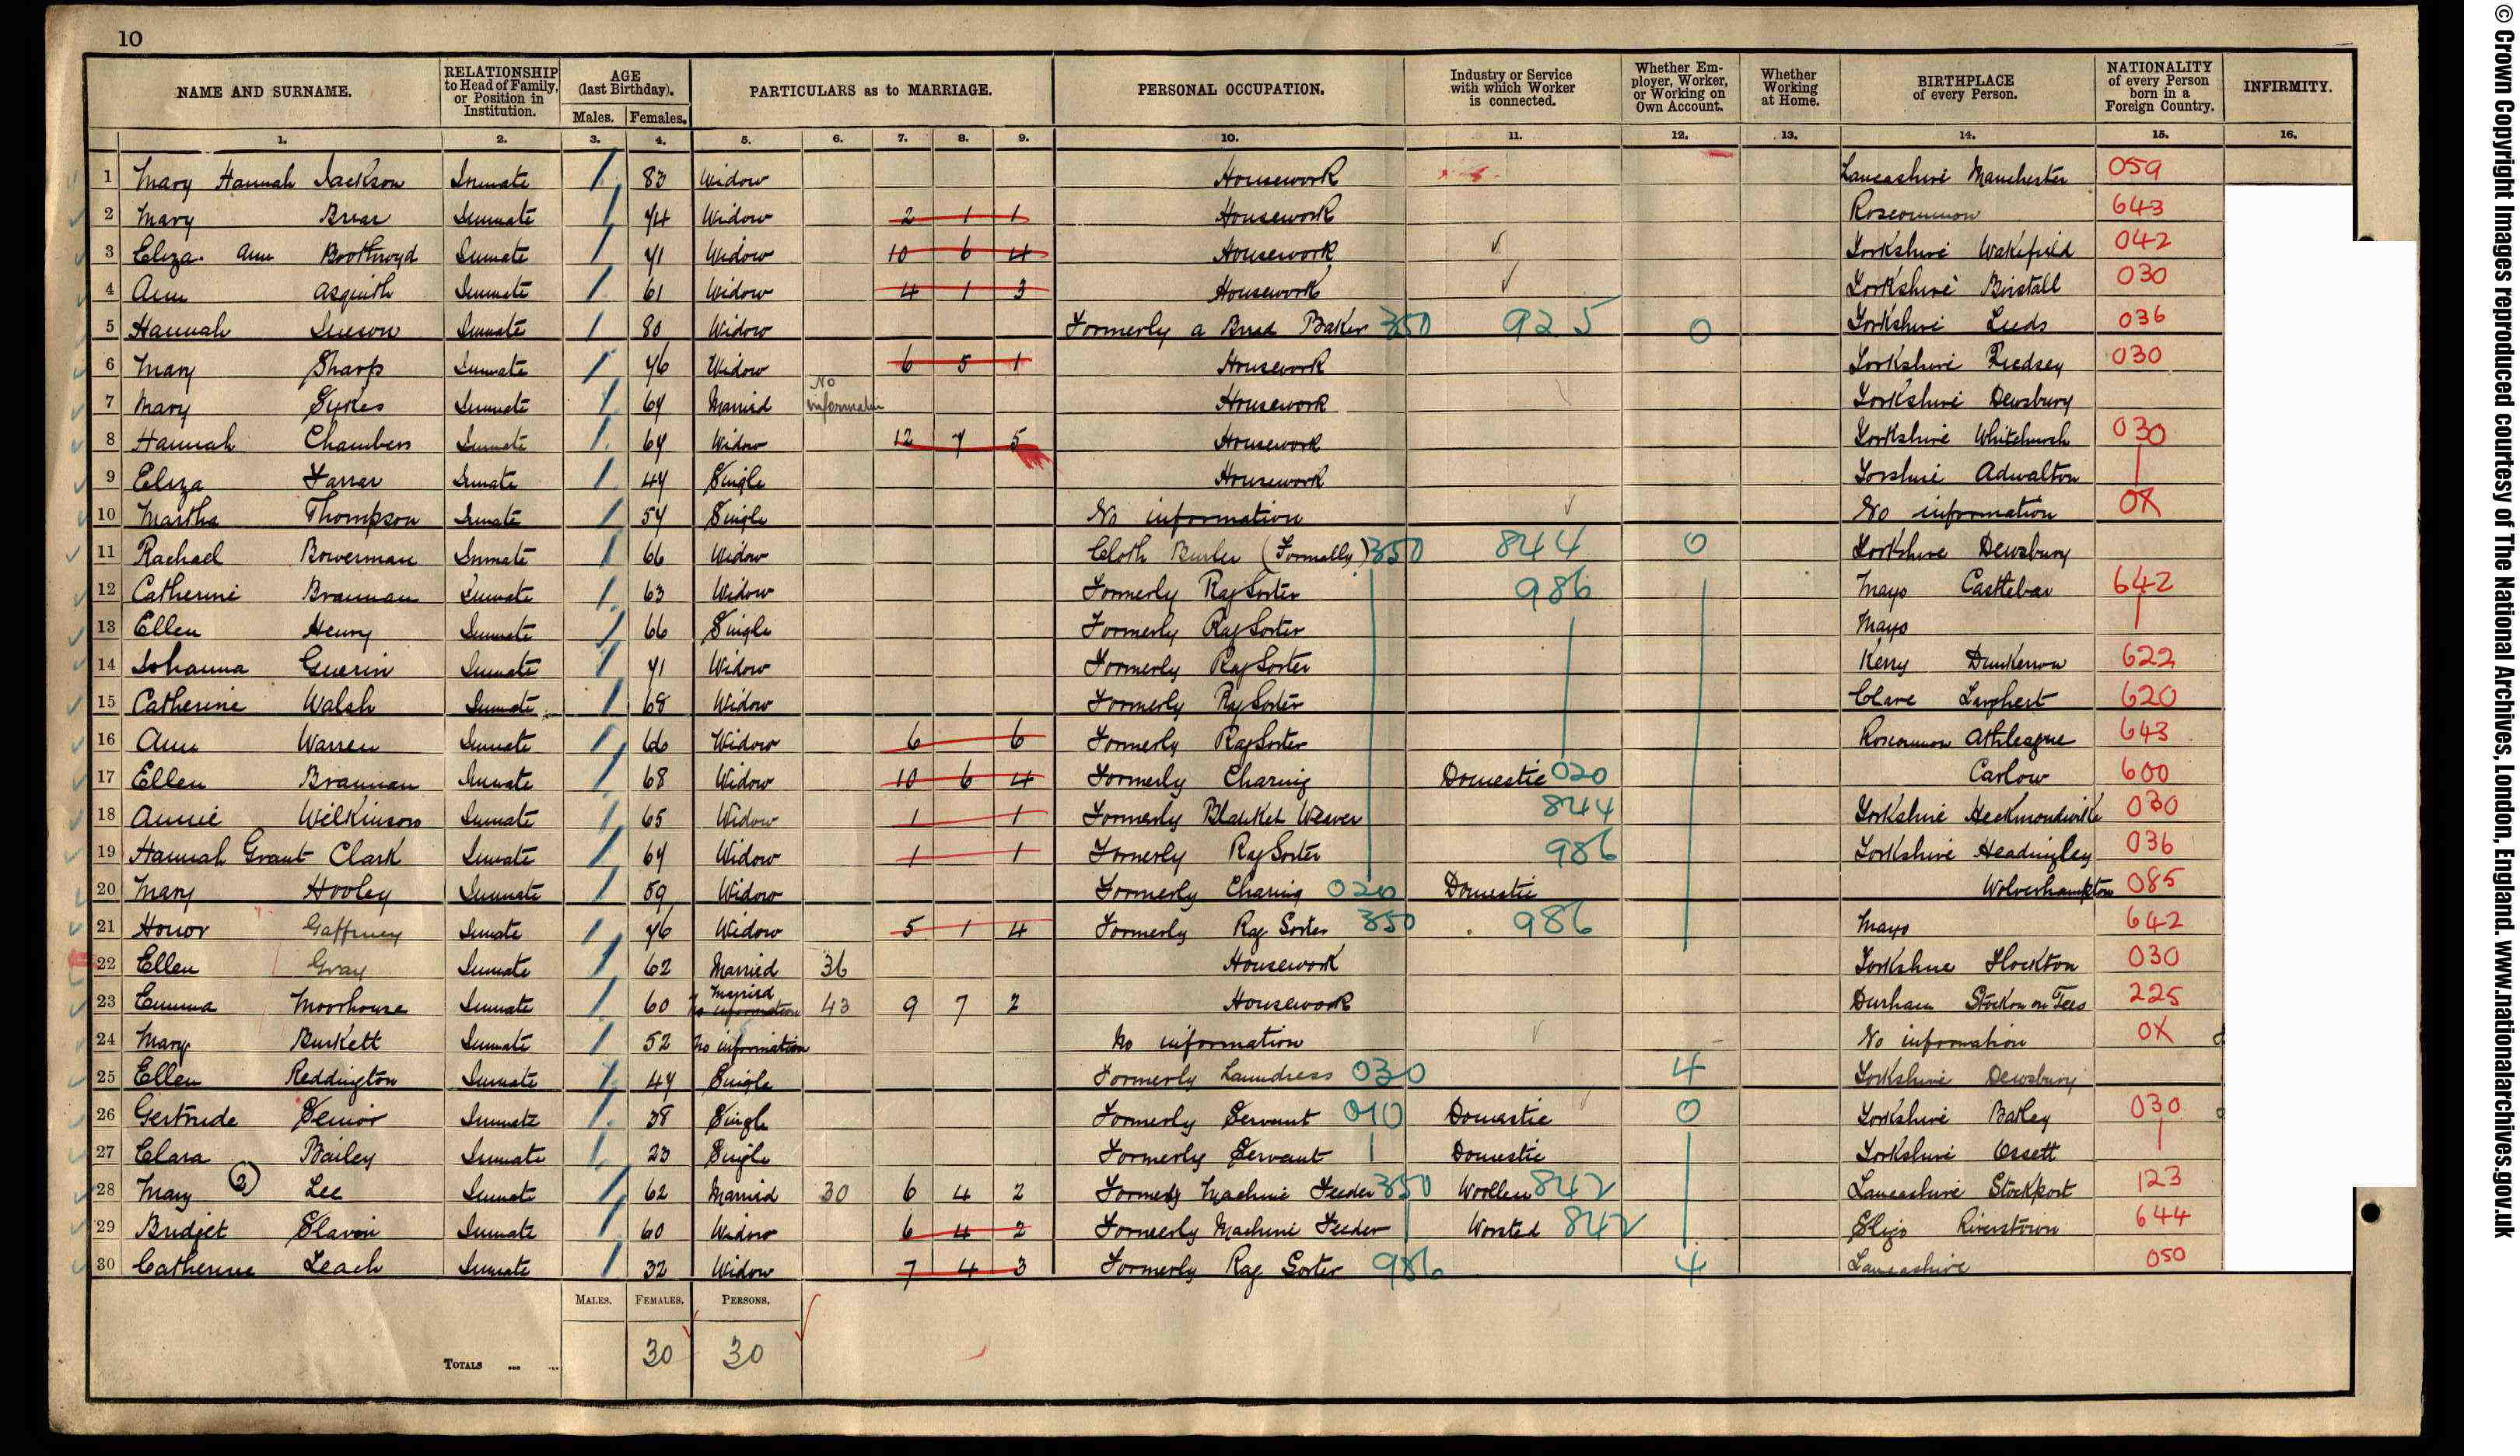 10
NAME AND SURNAME. RELATIONSHIP to Head of Family, or Position in Institution. AGE (last Birthday). Males. Females. PARTICULARS as to MARRIAGE. PERSONAL OCCUPATION. Industry or Service with which Worker is connected. Whether Employer, Worker, or Working on Own Account. Whether Working at Home. BIRTHPLACE of every Person. NATIONALITY of every Person born in a Foreign Country. INFIRMITY.
1. 2. 3. 4. 5. 6. 7. 8. 9. 10. 11. 12. 13. 14. 15. 16.
1 Mary Hannah Jackson Inmate 1 83 Widow Housework Lancashire Manchester 059
2 Mary Briar Inmate 1 74 Widow 2 1 1 Housework Roscommon 643
3 Eliza Ann Boothroyd Inmate 1 71 Widow 10 6 4 Housework Yorkshire Wakefield 042
4 Ann Asquith Inmate 1 61 Widow 4 1 3 Housework Yorkshire Birstall 030
5 Hannah Inmate 1 80 Widow Formerly a Bread Baker 350 925 0 Yorkshire Leeds 036
6 Mary Sharp Inmate 1 76 Widow 6 5 1 Housework Yorkshire 030
7 Mary Sykes Inmate 1 67 Married No information Housework Yorkshire Dewsbury
8 Hannah Chambers Inmate 1 67 Widow 12 7 5 Housework Yorkshire Whitchurch 030
9 Eliza Farrar Inmate 1 47 Single Housework Yorshire Adwalton
10 Martha Thompson Inmate 1 57 Single No information No information OX
11 Rachael Bowerman Inmate 1 66 Widow Cloth Burler (Formally) 350 844 0 Yorkshire Dewsbury
12 Catherine Brannan Inmate 1 63 Widow Formerly Rag Sorter 986 Mayo Castlebar 642
13 Ellen Henry Inmate 1 66 Single Formerly Rag Sorter Mayo
14 Johanna Guerin Inmate 1 71 Widow Formerly Rag Sorter Kerry 622
15 Catherine Walsh Inmate 1 68 Widow Formerly Rag Sorter Clare 620
16 Ann Warren Inmate 1 66 Widow 6 6 Formerly Rag Sorter Roscommon Athleague 643
17 Ellen Brannan Inmate 1 68 Widow 10 6 4 Formerly Charing Domestic 020 Carlow 600
18 Annie Wilkinson Inmate 1 65 Widow 1 1 Formerly Blanket Weaver 844 Yorkshire Heckmondwike 030
19 Hannah Grant Clark Inmate 1 67 Widow 1 1 Formerly Rag Sorter 986 Yorkshire Headingley 036
20 Mary Hooley Inmate 1 59 Widow Formerly Charing 020 Domestic Wolverhampton 085
21 Honor Gaffney Inmate 1 76 Widow 5 1 4 Formerly Rag Sorter 350 986 Mayo 642
22 Ellen Gray Inmate 1 62 Married 36 Housework Yorkshire Flockton 030
23 Emma Moorhouse Inmate 1 60 Married No information 43 9 7 2 Housework Durham Stockton on Tees 225
24 Mary Burkett Inmate 1 52 No information No information No information OX
25 Ellen Reddington Inmate 1 47 Single Formerly Laundress 030 4 Yorkshire Dewsbury
26 Gertrude Senior Inmate 1 38 Single Formerly Servant 010 Domestic 0 Yorkshire Batley 030
27 Clara Bailey Inmate 1 23 Single Formerly Servant Domestic Yorkshire Ossett
28 Mary (2) Lee Inmate 1 62 Married 30 6 4 2 Formerly Machine Feeder 350 Woollen 842 Lancashire Stockport 123
29 Bridget Slavin Inmate 1 60 Widow 6 4 2 Formerly Machine Feeder Worsted 842 Sligo Riverstown 644
30 Catherine Leach Inmate 1 32 Widow 7 4 3 Formerly Rag Sorter 986 4 Lancashire 050
MALES. FEMALES. PERSONS.
TOTALS ... ... 30 30
© Crown Copyright Images reproduced courtesy of The National Archives, London, England. www.nationalarchives.gov.uk